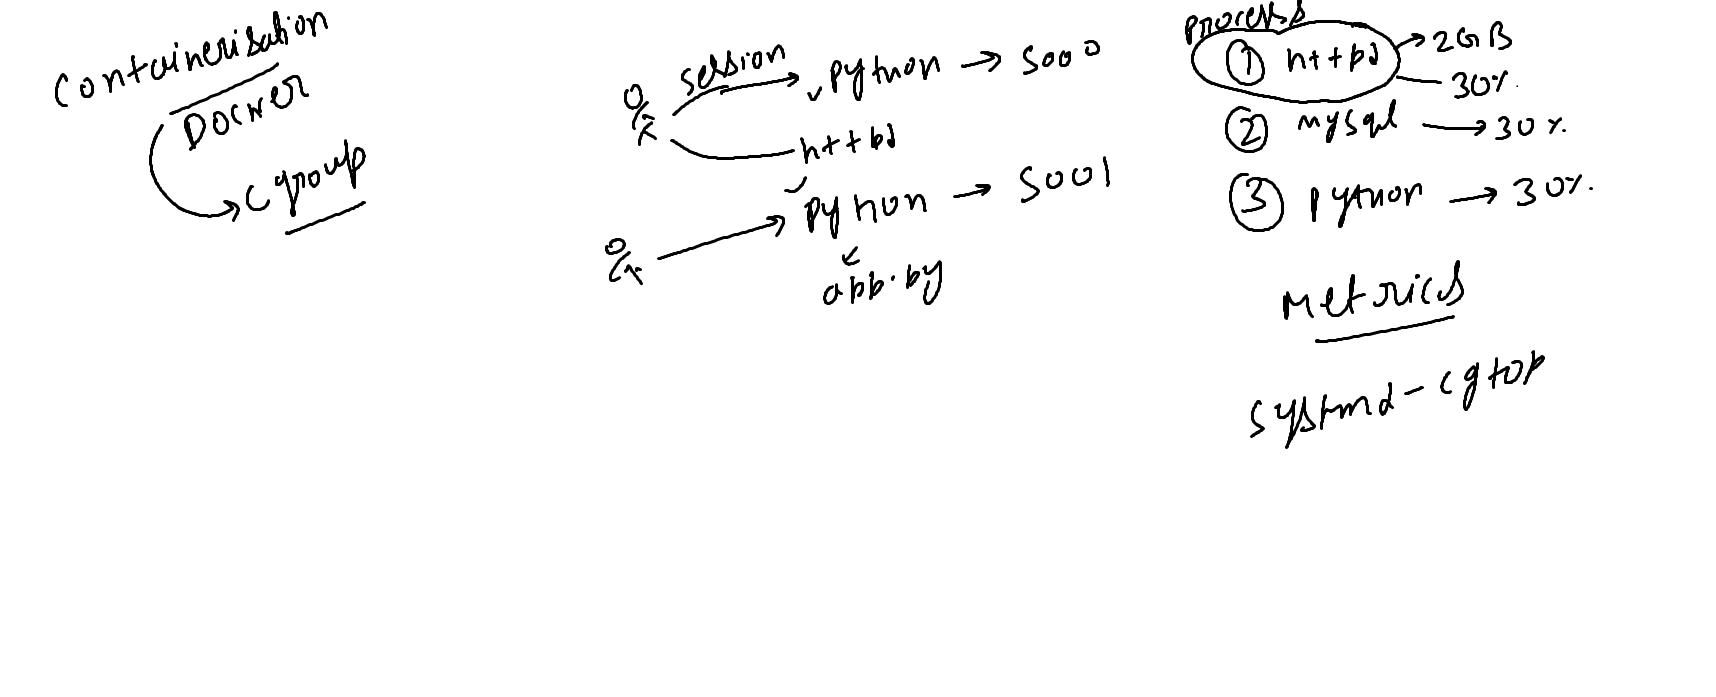 Containerisation
Docker
Cgroup
session
python → 5000
httpd
python → 5001
app.py
Process
① httpd → 2GB
30%
② mysql → 30%
③ python → 30%
Metrics
systmd-cgtop